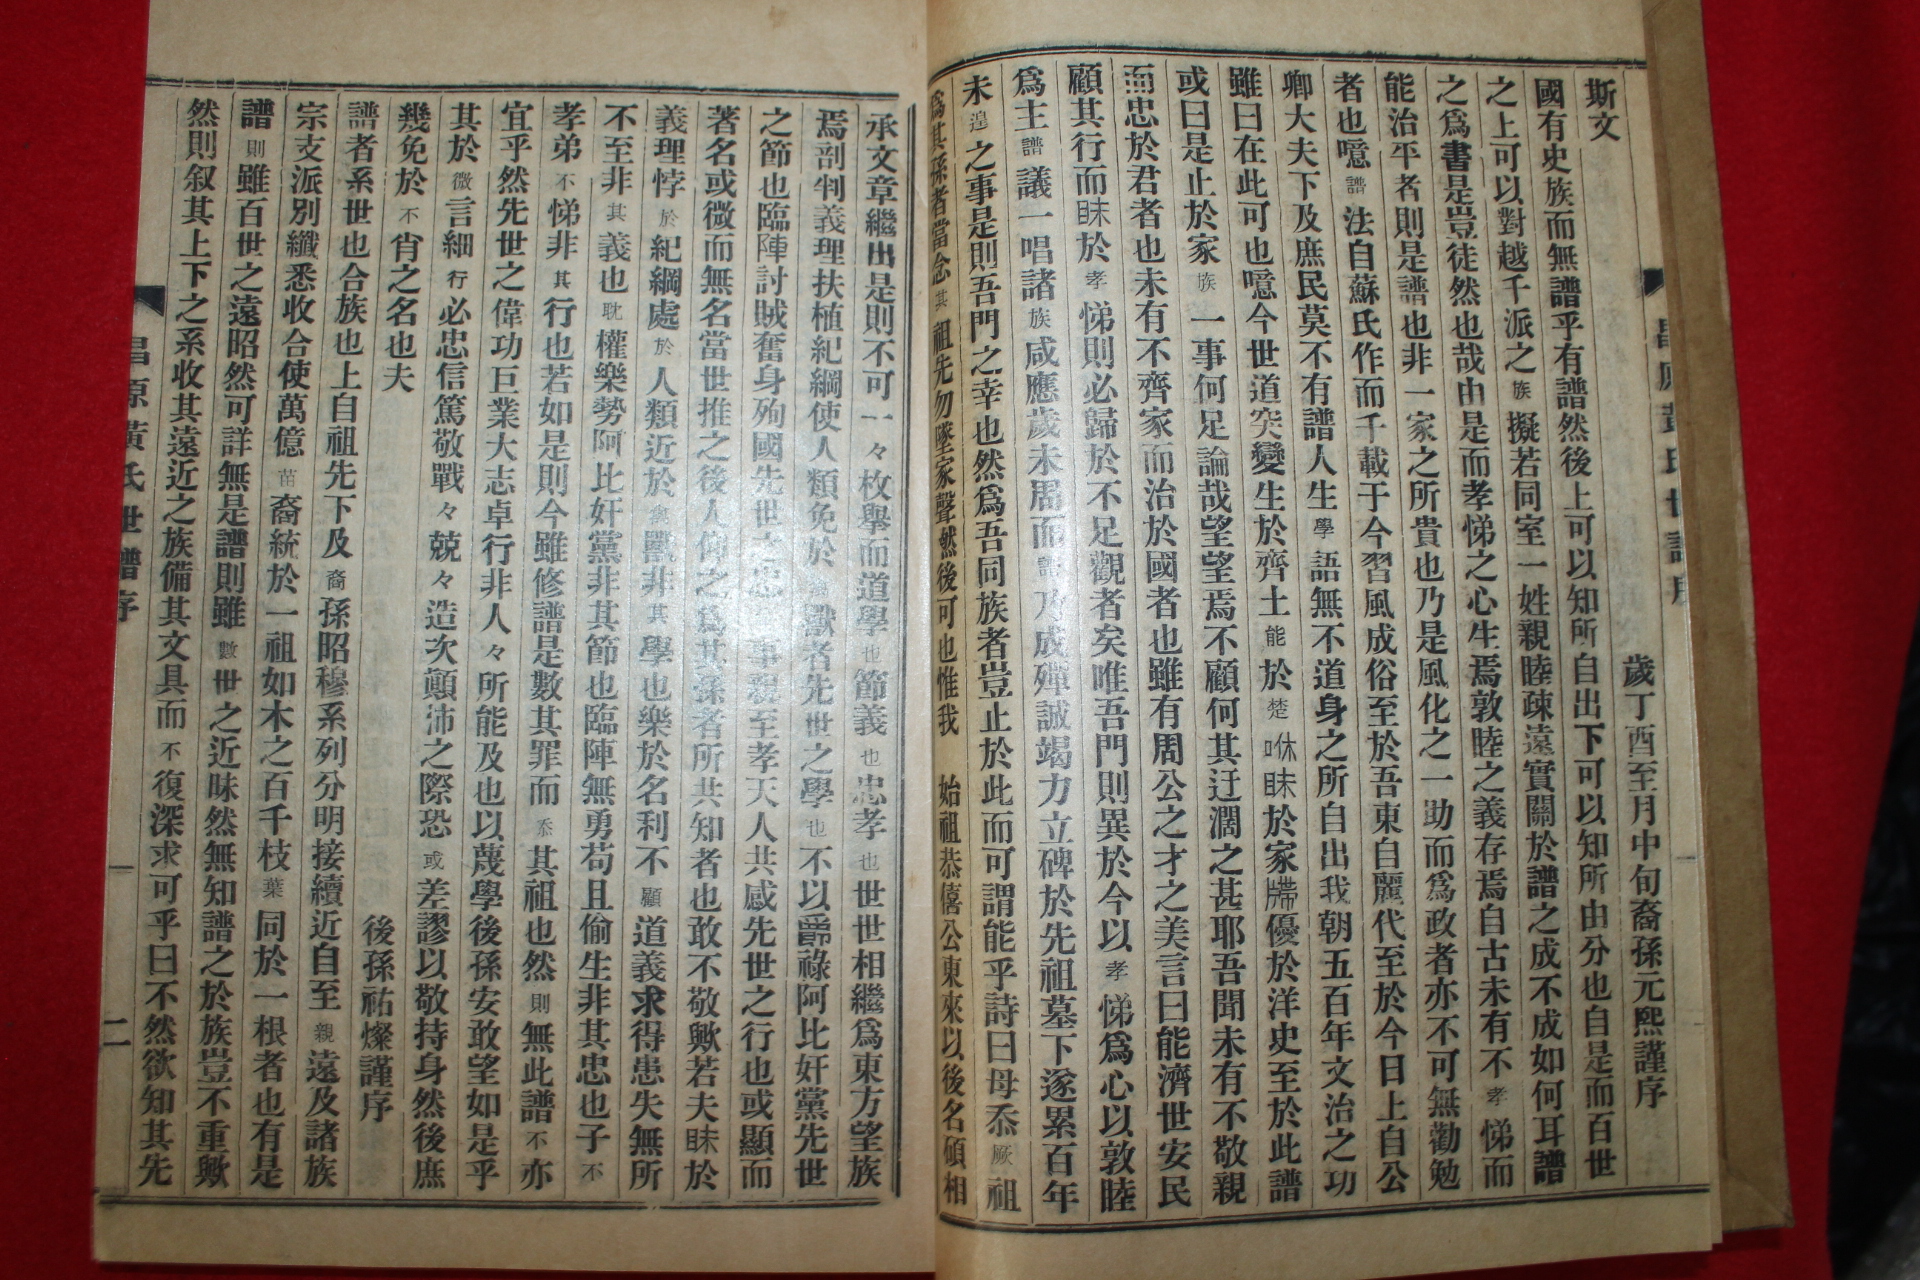 斯文
歲丁酉至月中旬裔孫元熙謹序
國有史族而無譜乎有譜然後上可以知所自出下可以知所由分也自是而百世
之上可以對越千派之族擬若同室一姓親睦疎遠實關於譜之成不成如何耳譜
之爲書是豈徒然也哉由是而孝悌之心生焉敦睦之義存焉自古未有不孝悌而
能治平者則是譜也非一家之所貴也乃是風化之一助而爲政者亦不可無勸勉
者也噫譜法自蘇氏作而千載于今習風成俗至於吾東自麗代至於今日上自公
卿大夫下及庶民莫不有譜人生學語無不道身之所自出我朝五百年文治之功
雖曰在此可也噫今世道突變生於齊士能於楚咻昧於家㡧優於洋史至於此譜
或曰是止於家族一事何足論哉望望焉不顧何其迂濶之甚耶吾聞未有不敬親
而忠於君者也未有不齊家而治於國者也雖有周公之才之美言曰能濟世安民
顧其行而昧於孝悌則必歸於不足觀者矣唯吾門則異於今以孝悌爲心以敦睦
爲主譜議一唱諸族咸應歲未周而譜乃成殫誠竭力立碑於先祖墓下遂累百年
未遑之事是則吾門之幸也然爲吾同族者豈止於此而可謂能乎詩曰母忝厥祖
爲其孫者當念其祖先勿墜家聲然後可也惟我 始祖恭僖公東來以後名碩相
承文章繼出是則不可一々枚擧而道學也節義也忠孝也世世相繼爲東方望族
焉剖判義理扶植紀綱使人類免於獸者先世之學也不以爵祿阿比奸黨先世
之節也臨陣討賊奮身殉國先世之忠事親至孝天人共感先世之行也或顯而
著名或微而無名當世推之後人仰之爲其孫者所共知者也敢不敬歟若夫昧於
義理悖於紀綱處於人類近於禽獸非其學也樂於名利不顧道義求得患失無所
不至非其義也耽權樂勢阿比奸黨非其節也臨陣無勇苟且偷生非其忠也子不
孝弟不悌非其行也若如是則今雖修譜是數其罪而忝其祖也然則無此譜不亦
宜乎然先世之偉功巨業大志卓行非人々所能及也以蔑學後孫安敢望如是乎
其於微言細行必忠信篤敬戰々兢々造次顚沛之際恐或差謬以敬持身然後庶
幾免於不肖之名也夫
後孫祐燦謹序
譜者系世也合族也上自祖先下及裔孫昭穆系列分明接續近自至親遠及諸族
宗支派別纖悉收合使萬億苗裔統於一祖如木之百千枝葉同於一根者也有是
譜則雖百世之遠昭然可詳無是譜則雖數世之近昧然無知譜之於族豈不重歟
然則叙其上下之系收其遠近之族備其文具而不復深求可乎曰不然欲知其先
昌原黃氏世譜序
二